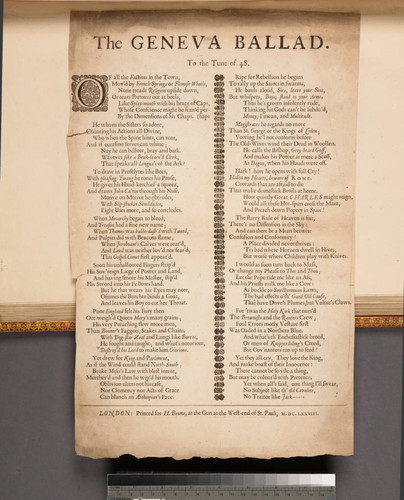 The GENEVA BALLAD.
To the Tune of 48.
OF all the Factions in the Town,
Mov'd by French Springs or Flemish Wheels,
None treads Religion upside down,
Or tears Pretences out at heels,
Like Splay-mouth with his brace of Caps,
Whose Conscience might be scan'd per-
By the Dimensions of his Chaps. (haps
He whom the Sisters so adore,
Counting his Actions all Divine,
Who when the Spirit hints, can roar,
And if occasion serves can whine;
Nay he can bellow, bray and bark.
Was ever like a Beuk-learn'd Clerk,
That speaks all Lingua's of the Ark!
To draw in Proselytes like Bees,
With pleasing Twang he tones his Prose,
He gives his Hand-kerchief a squeez,
And draws John Calvin through his Nose.
Motive on Motive he obtrudes,
With Slip-stocken Similitudes,
Eight Uses more, and so concludes.
When Monarchy began to bleed,
And Treason had a fine new name;
When Thames was balderdash'd with Tweed,
And Pulpits did with Beacons flame;
When Jeroboam's Calves were rear'd,
And Laud was neither lov'd nor fear'd;
This Gospel-Comet first appear'd.
Soon his unhallowed Fingers strip'd
His Sov'reign Liege of Power and Land,
And having smote his Master, slip'd
His Sword into his Fellows hand.
But he that wears his Eyes may note,
Oftimes the Butcher binds a Goat,
And leaves his Boy to cut her Throat.
Poor England felt his Fury then
Out-weigh'd Queen Mary's many grains;
His very Preaching slew more men,
Than Bonner's Faggots, Stakes and Chains.
With Dog-star Zeal and Lungs like Boreas,
He fought and taught; and what's notorious,
Destroy'd his Lord to make him Glorious.
Yet drew for King and Parliament,
As if the Wind could stand North-South;
Broke Moses's Law with blest intent,
Murther'd and then he wip'd his mouth.
Oblivion alters not his case,
Nor Clemency nor Acts of Grace
Can blanch an Æthiopian's Face.
Ripe for Rebellion he begins
To rally up the Saints in swarms,
He bawls aloud, Sirs, leave your Sins,
But whispers, Boys, stand to your Arms.
Thus he's grown insolently rude,
Thinking his Gods can't be subdu'd,
Money, I mean, and Multitude.
Magistrates he regards no more
Than St. George or the Kings of Colen;
Vowing he'l not conform before
The Old-Wives wind their Dead in Woollen.
He calls the Bishop, Gray-beard Goff,
And makes his Power as mere a Scoff,
As Dagon, when his Hands were off.
Hark! how he opens with full Cry!
Hallow my Hearts, beware of ROME.
Cowards that are afraid to die
Thus make domestick Broils at home.
How quietly Great CHARLES might reign,
Would all these Hot-spurs cross the Main,
And Preach down Popery in Spain.
The starry Rule of Heaven is fixt,
There's no Dissension in the Sky:
And can there be a Mean betwixt
Confusion and Conformity!
A Place divided never thrives:
'Tis bad where Hornets dwell in Hives,
But worse where Children play with Knives.
I would as soon turn back to Mass,
Or change my Phrase to Thee and Thou;
Let the Pope ride me like an Ass,
And his Priests milk me like a Cow:
As buckle to Smectymnuan Laws,
The bad effects o'th' Good Old Cause,
That have Dove's Plumes, but Vultur's Claws.
For 'twas the Holy Kirk that nurs'd
The Brownists and the Ranters Crew;
Foul Errors motly Vesture first
Was Oaded in a Northern Blue.
And what's th' Enthusiastick breed,
Or men of Knipperdoling's Creed,
But Cov'nanters run up to seed!
Yet they all cry, They love the King,
And make boast of their Innocence:
There cannot be so vile a thing,
But may be colour'd with Pretence.
Yet when all's said, one thing I'll swear,
No Subject like th' old Cavalier,
No Traitor like Jack——
LONDON: Printed for H. Brome, at the Gun at the West-end of St. Pauls, M.DC.LXXVIII.